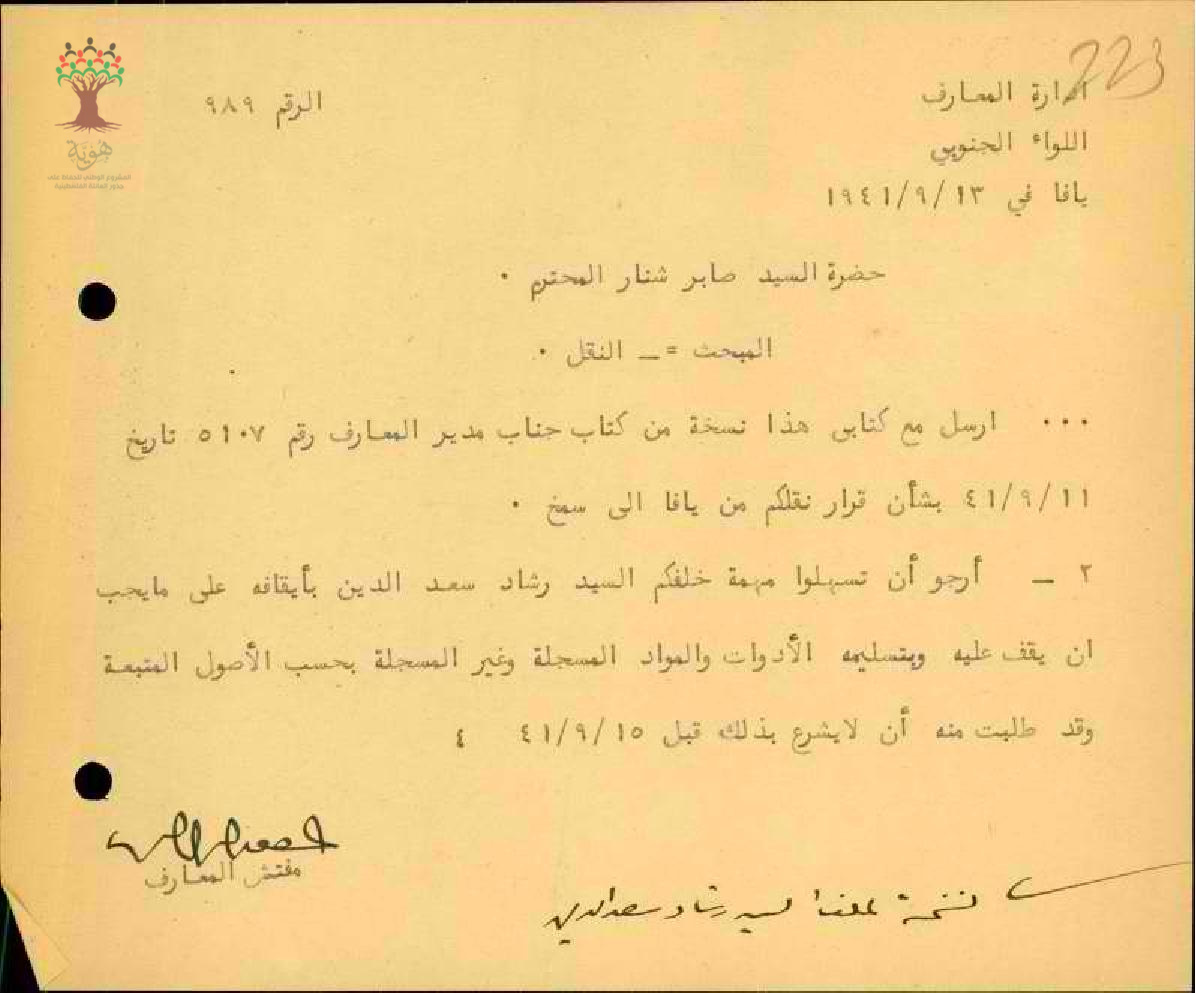 223
ادارة المعارف
الرقم ٩٨٩
اللواء الجنوبي
يافا في ١٩٤١/٩/١٣
هوية
المشروع الوطني للحفاظ على
جذور العائلة الفلسطينية
حضرة السيد صابر شنار المحترم ٠
المبحث =ـ النقل ٠
٠٠٠ ارسل مع كتابي هذا نسخة من كتاب جناب مدير المعارف رقم ٥١٠٧ تاريخ
٤١/٩/١١ بشأن قرار نقلكم من يافا الى سمخ ٠
٢ ـ أرجو أن تسهلوا مهمة خلفكم السيد رشاد سعد الدين بأيقافه على مايجب
ان يقف عليه وبتسليمه الأدوات والمواد المسجلة وغير المسجلة بحسب الأصول المتبعة
وقد طلبت منه أن لايشرع بذلك قبل ٤١/٩/١٥ ٤
مفتش المعارف
نسخة لملف السيد رشاد سعد الدين